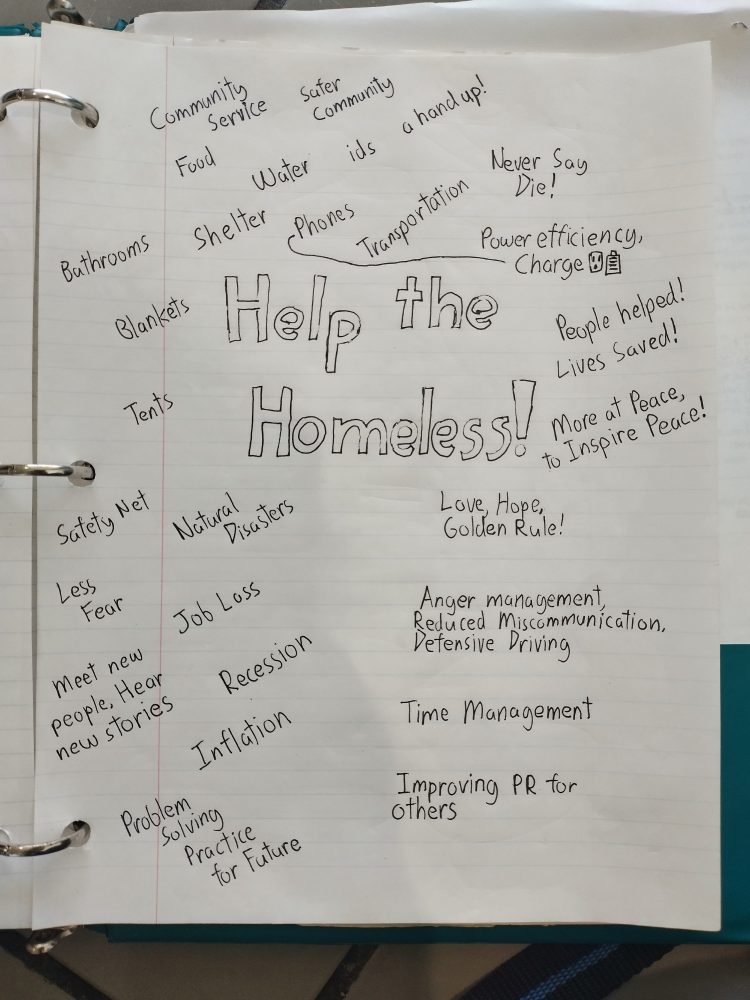 Community
Service
Safer
Community
a hand up!
Food
Water
ids
Never Say
Die!
Bathrooms
Shelter
Phones
Transportation
Power efficiency,
Charge
Blankets
Help the
Homeless!
People helped!
Lives Saved!
Tents
More at Peace,
to Inspire Peace!
Safety Net
Natural
Disasters
Love, Hope,
Golden Rule!
Less
Fear
Job Loss
Anger management,
Reduced Miscommunication,
Defensive Driving
Meet new
people, Hear
new stories
Recession
Inflation
Time Management
Improving PR for
others
Problem
Solving
Practice
for Future